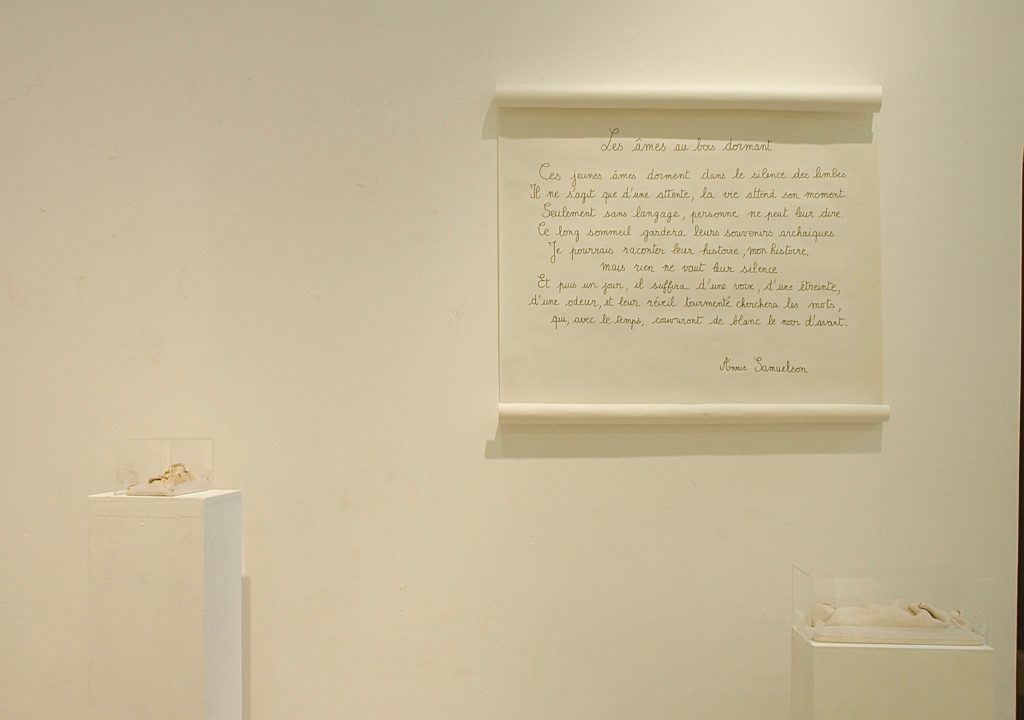 Les âmes au bois dormant
Ces jeunes âmes dorment dans le silence des limbes.
Il ne s'agit que d'une attente, la vie attend son moment
Seulement sans langage, personne ne peut leur dire.
Ce long sommeil gardera leurs souvenirs archaïques.
Je pourrais raconter leur histoire, mon histoire,
mais rien ne vaut leur silence
Et puis un jour, il suffira d'une voix, d'une étreinte,
d'une odeur, et leur réveil tourmenté cherchera les mots,
qui, avec le temps, couvriront de blanc le noir d'avant.
Annie Samuelson